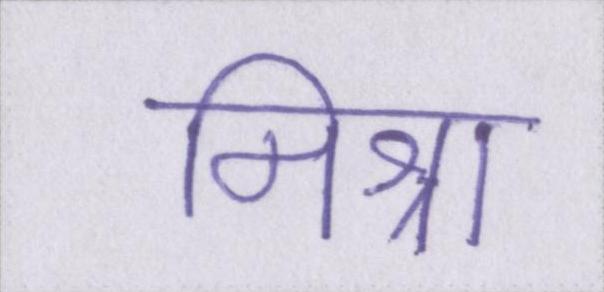 मिश्रा